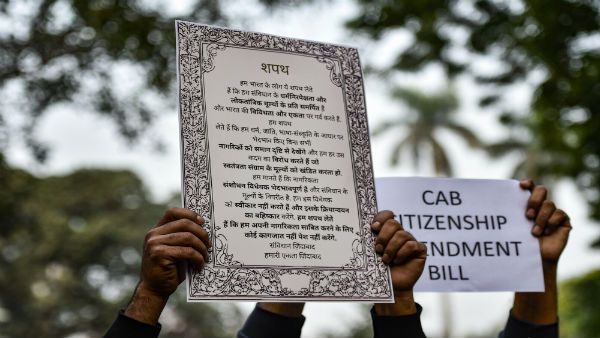 शपथ
हम भारत के लोग ये शपथ लेते
हैं कि हम संविधान के धर्मनिरपेक्षता और
लोकतांत्रिक मूल्यों के प्रति समर्पित हैं
और भारत की विविधता और एकता पर गर्व करते हैं.
हम शपथ
लेते हैं कि हम धर्म, जाति, भाषा-संस्कृति के आधार पर
भेदभाव किए बिना सभी
नागरिकों को समान दृष्टि से देखेंगे और हम हर उस
कदम का विरोध करते हैं जो
स्वतंत्रता संग्राम के मूल्यों को खंडित करता हो.
हम मानते हैं कि नागरिकता
संशोधन विधेयक भेदभावपूर्ण है और संविधान के
मूल्यों के विपरीत है. हम इस विधेयक
को स्वीकार नहीं करते और इसके क्रियान्वयन
का बहिष्कार करेंगे. हम शपथ लेते
हैं कि हम अपनी नागरिकता साबित करने के लिए
कोई कागजात नहीं पेश नहीं करेंगे.
संविधान ज़िंदाबाद
हमारी एकता ज़िंदाबाद
CAB
CITIZENSHIP
ENDMENT
BILL